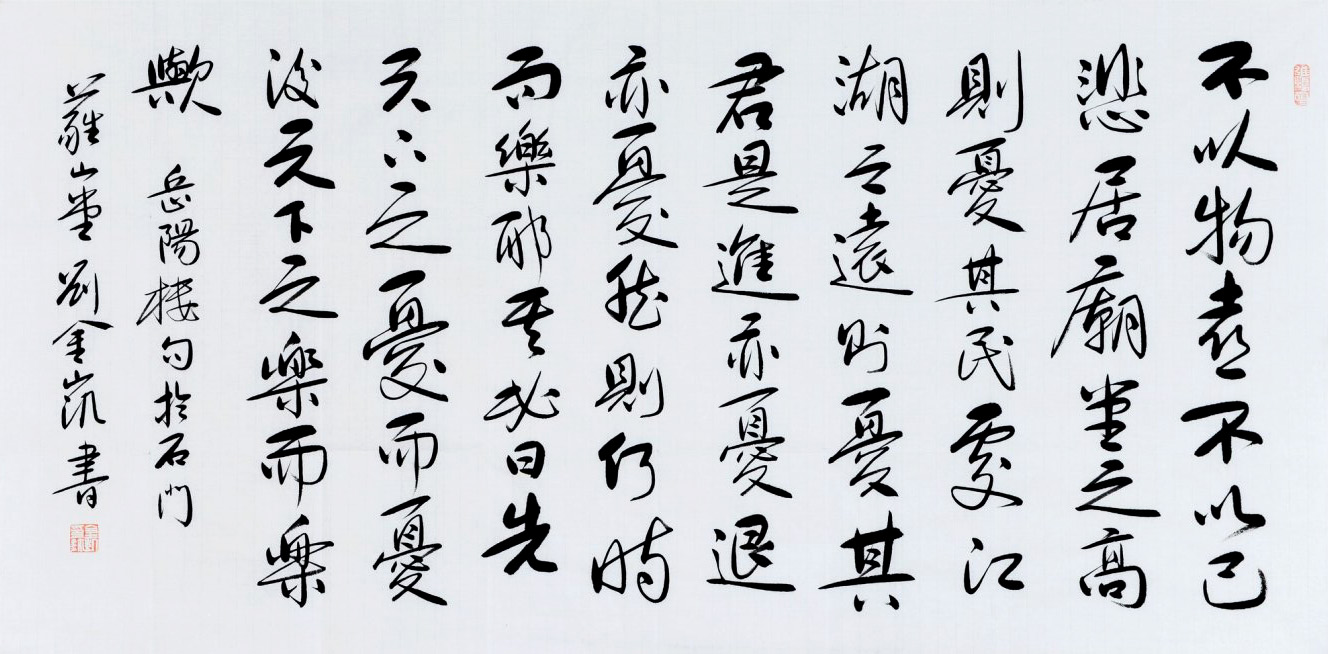 不以物喜不以己
悲居廟堂之高
則憂其民處江
湖之遠則憂其
君是進亦憂退
亦憂然則何時
而樂耶其必曰先
天下之憂而憂
後天下之樂而樂
歟 岳陽樓句於石門
山堂劉金書